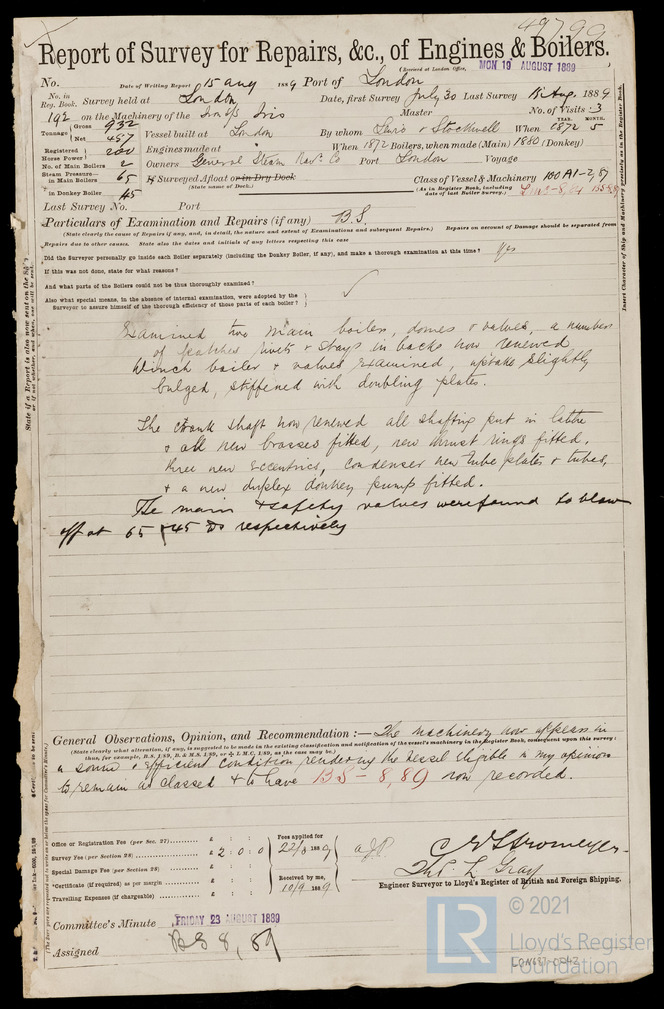 49799
Report of Survey for Repairs, &c., of Engines & Boilers.
(Received at London Office, MON 19 AUGUST 1889
No. Date of Writing Report 15 Aug 1889 Port of London
No. in Reg. Book. Survey held at London Date, first Survey July 30 Last Survey Aug. 1889
192 on the Machinery of the Iris Master No. of Visits 3
Tonnage Gross 932 Net 457 Vessel built at London By whom Lewis & Stockwell When YEAR. 1872 MONTH. 5
Registered Horse Power 200 Engines made at " When 1872 Boilers, when made (Main) 1880 (Donkey)
No. of Main Boilers 2 Owners General Steam Nav. Co Port London Voyage
Steam Pressure in Main Boilers 65 If Surveyed Afloat or in Dry Dock Class of Vessel & Machinery 100A1-2,87
(State name of Dock.) (As in Register Book, including date of last Boiler Survey.)
in Donkey Boiler 45
Last Survey No. Port
Particulars of Examination and Repairs (if any) B.S.
(State clearly the cause of Repairs if any, and, in detail, the nature and extent of Examinations and subsequent Repairs.) Repairs on account of Damage should be separated from
Repairs due to other causes. State also the dates and initials of any letters respecting this case
Did the Surveyor personally go inside each Boiler separately (including the Donkey Boiler, if any), and make a thorough examination at this time? Yes
If this was not done, state for what reasons?
And what parts of the Boilers could not be thus thoroughly examined?
Also what special means, in the absence of internal examination, were adopted by the
Surveyor to assure himself of the thorough efficiency of those parts of each boiler?
Examined two main boilers, domes & valves, a number
of patches rivets & stays in backs now renewed
Winch boiler & valves examined, uptake slightly
bulged, stiffened with doubling plates.
The crank shaft now renewed all shafting put in lathe
& all new brasses fitted, new thrust rings fitted.
three new eccentrics, condenser new tube plates & tubes,
& a new duplex donkey pump fitted.
The main & safety valves were found to blow
off at 65 & 45 respectively
General Observations, Opinion, and Recommendation:— The machinery now appears in
(State clearly what alteration, if any, is suggested to be made in the existing classification and notification of the vessel's machinery in the Register Book, consequent upon this survey:
thus, for example, B.S. 1/89, B. & M.S. 1/89, or L.M.C. 1/89, as the case may be.)
a sound & efficient condition rendering the vessel eligible in my opinion
to remain as classed & to have BS - 8,89 now recorded.
Office or Registration Fee (per Sec. 27) £ : :
Survey Fee (per Section 28) £ 2 : 0 : 0
Special Damage Fee (per Section 28) £ : :
*Certificate (if required) as per margin £ : :
Travelling Expenses (if chargeable) £ : :
Fees applied for
22/8 1889
Received by me,
10/9 1889
C E Stromeyer.
Thos. L Gray
Engineer Surveyor to Lloyd's Register of British and Foreign Shipping.
Committee's Minute FRIDAY 23 AUGUST 1889
Assigned BS 8,89
LR © 2021
Lloyd's Register
Foundation
Insert Character of Ship and Machinery precisely as in the Register Book.